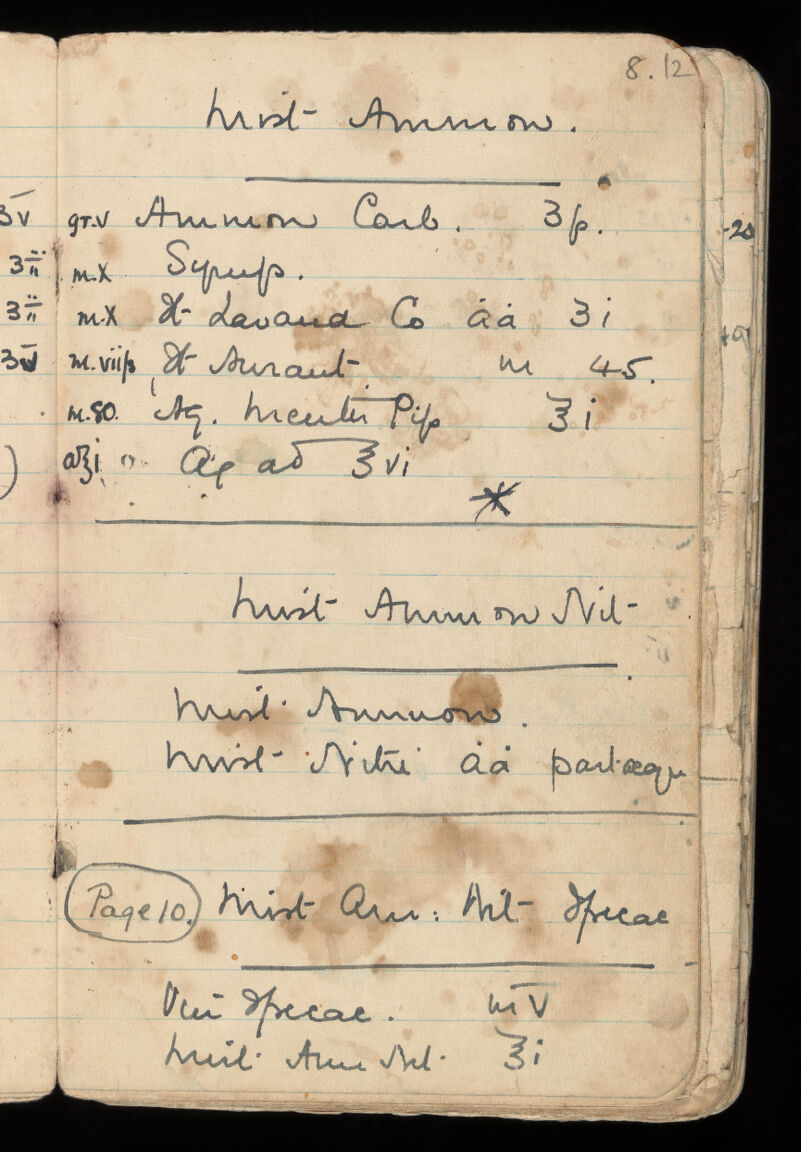 8.12
Mist Ammon.
ʒv gr.v Ammon Carb. ʒß.
ʒii m.X Syrup.
ʒii m.X Tr Lavand Co āā ʒi
ʒv m.viiß Tr Aurant m 45.
m.80. Aq. Menth Pip ℥i
ad ℥i Aq ad ℥vi
*
Mist Ammon Nit
Mist. Ammon.
Mist Nitri āā part æqu
Page 10. Mist Am: Nit Ipecac
Vin Ipecac. m V
Mist. Am Nit. ℥i
-20